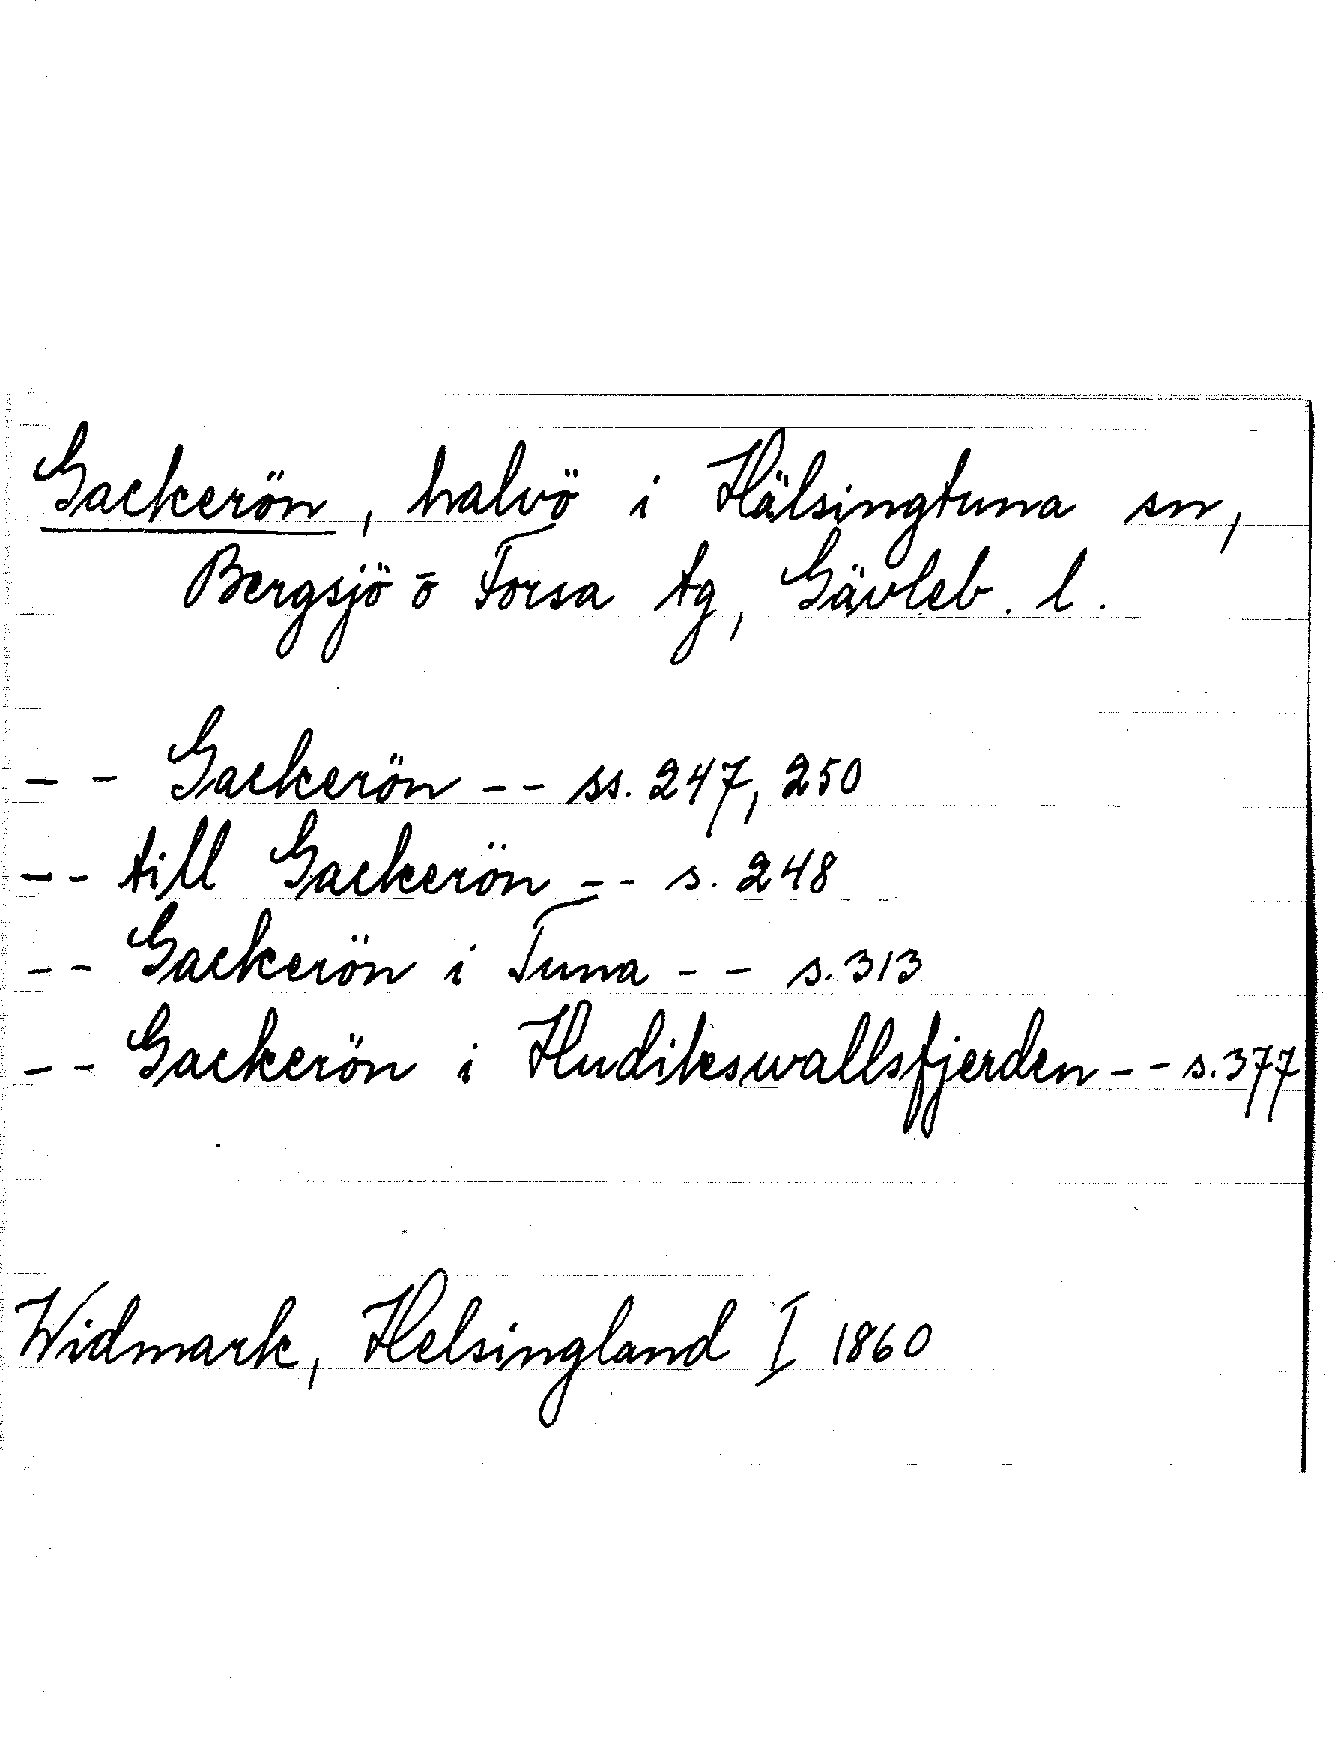 Gackerön, halvö i Hälsingtuna sn,
Bergsjö o Forsa tg, Gävleb. l.
-- Gackerön -- ss. 247, 250
-- till Gackerön -- s. 248
-- Gackerön i Tuna -- s. 313
-- Gackerön i Hudikswallsfjerden -- s. 377
Widmark, Helsingland I 1860